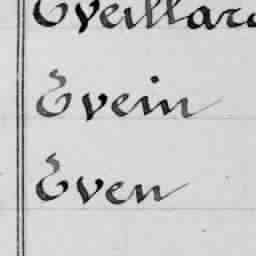 Eveillard
Evein
Even